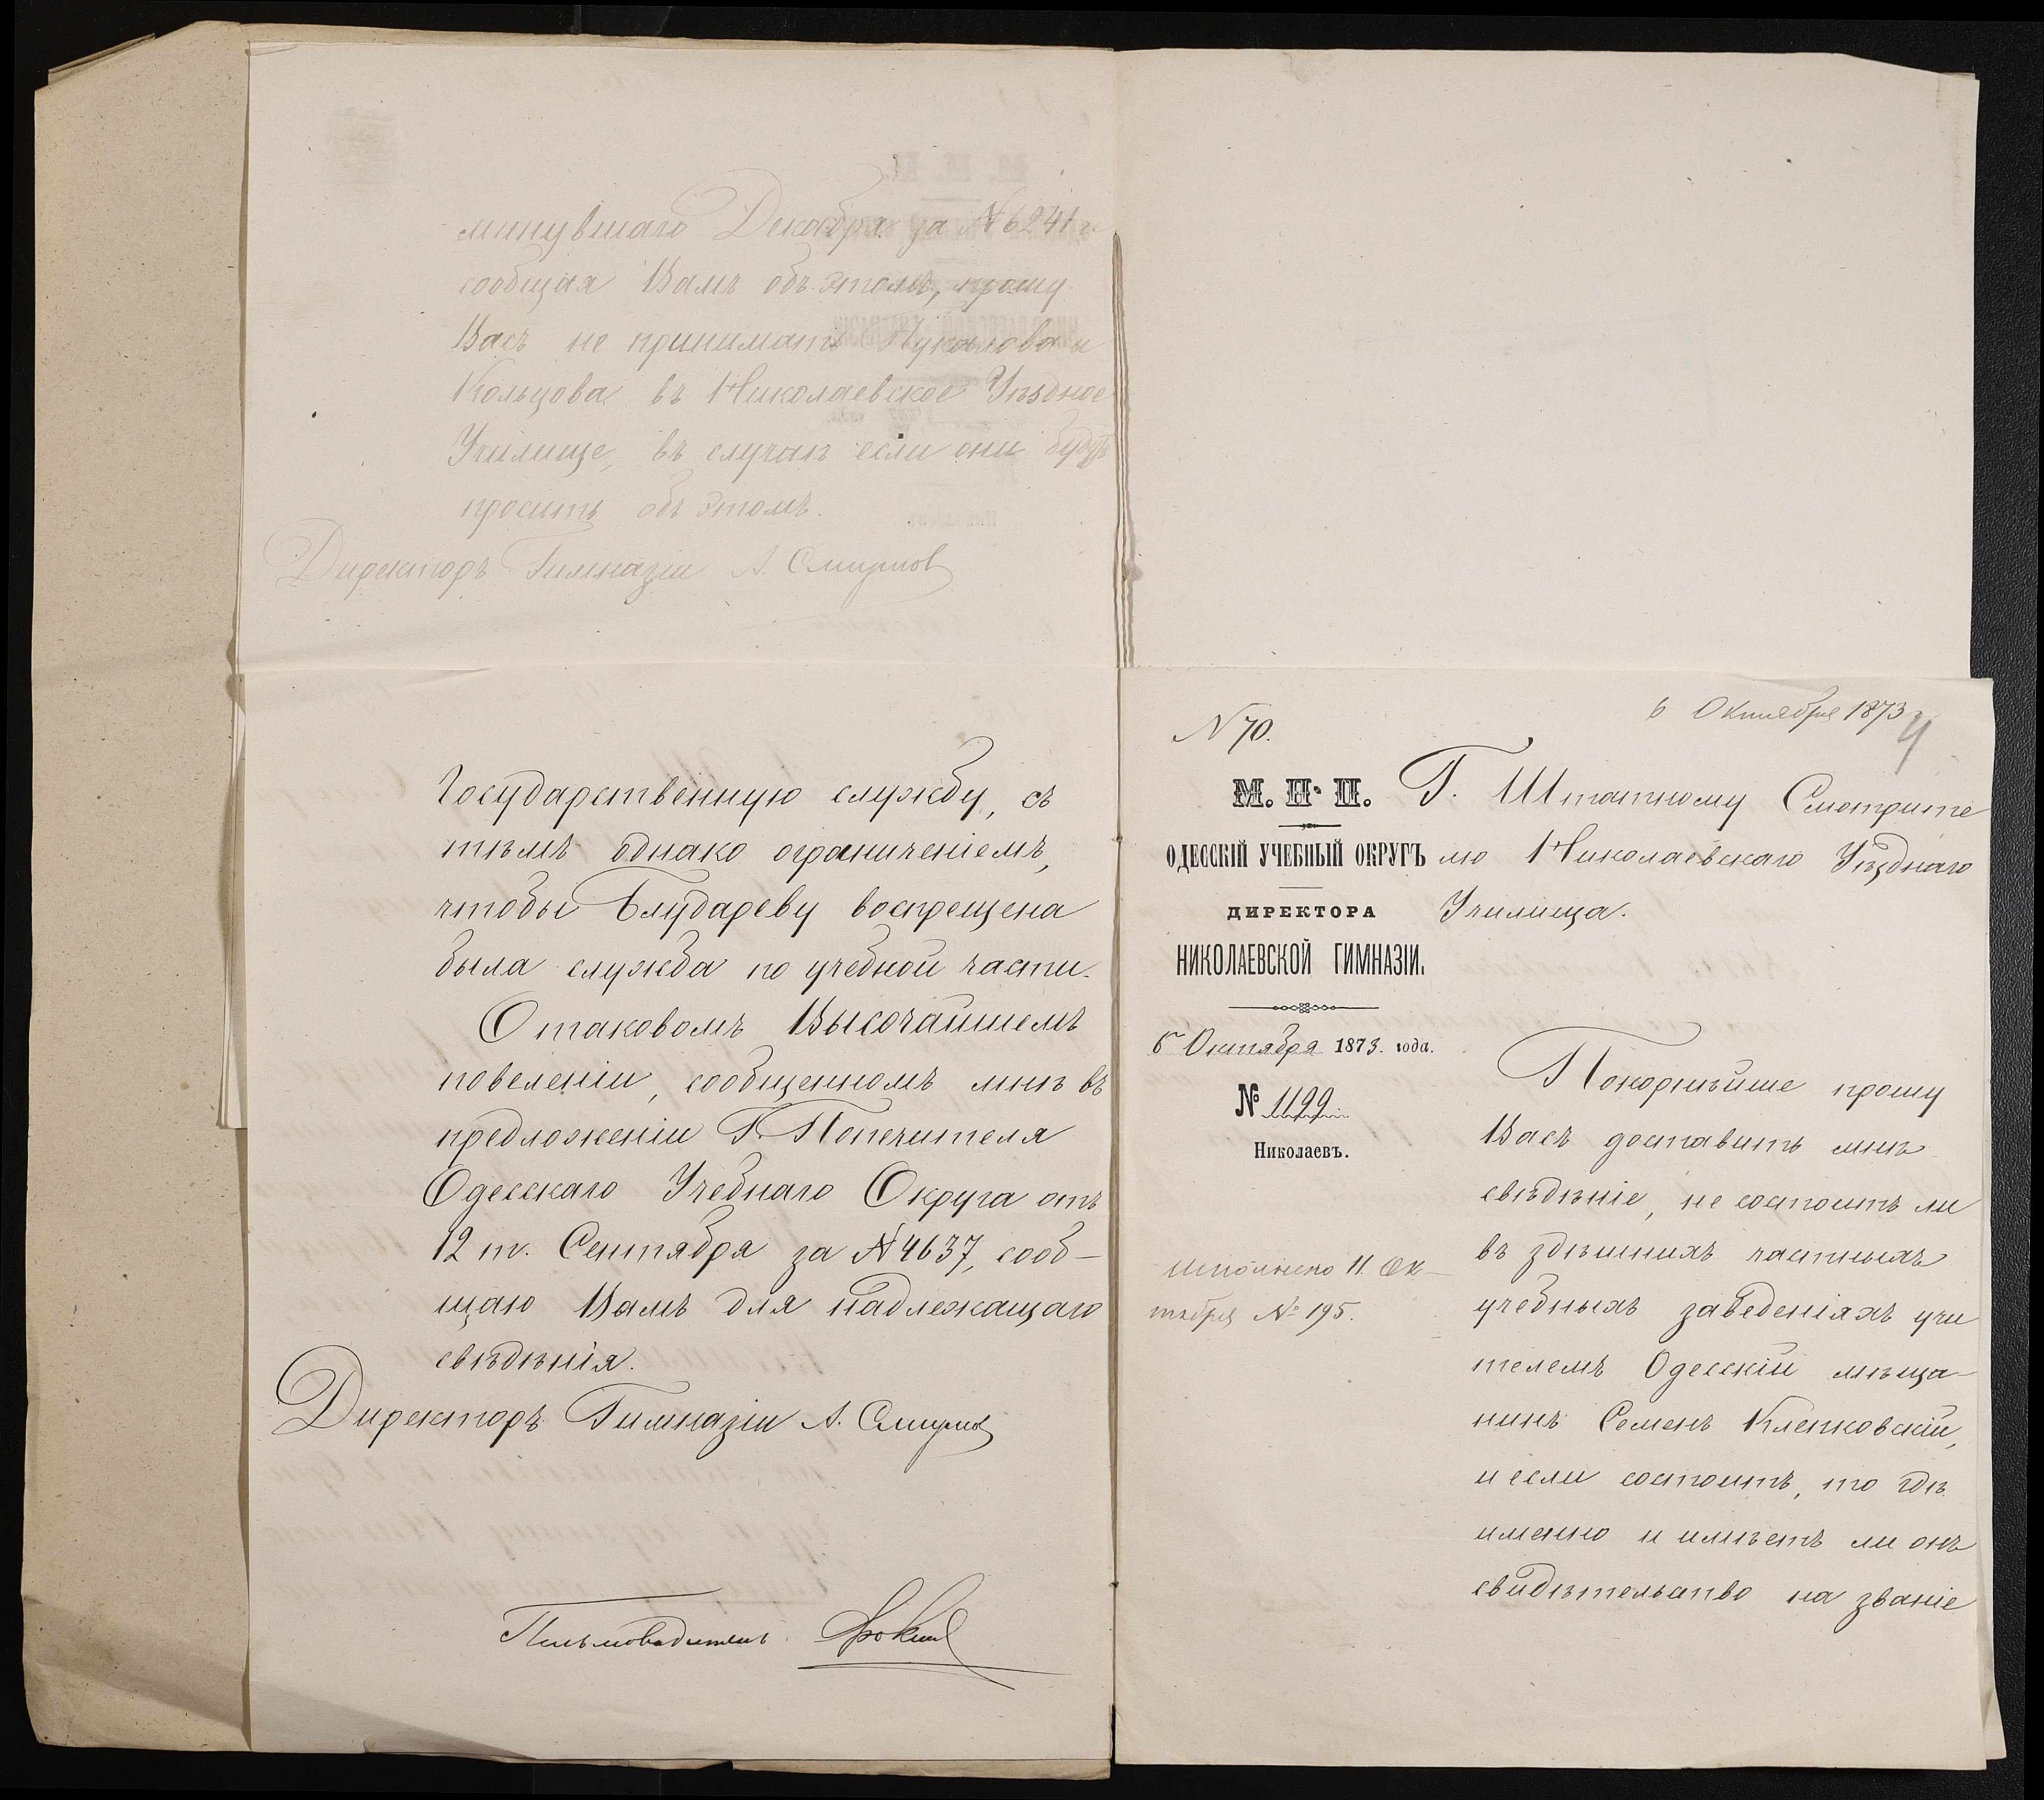 минувшаго Декабря за № 6241 и
сообщая Вамъ объ этомъ, прошу
Васъ не принимать и
Кольцова въ Николаевское Уѣздное
Училище, въ случаѣ если они будутъ
просить объ этомъ.
Директоръ Гимназіи А. Смирнов
Государственную службу, съ
тѣмъ однако ограниченіемъ,
чтобы Блудареву воспрещена
была служба по учебной части.
О таковомъ Высочайшемъ
повелѣніи, сообщенномъ мнѣ въ
предложеніи Г. Попечителя
Одесскаго Учебнаго Округа отъ
12 т. Сентября за № 4637, сооб-
щаю Вамъ для надлежащаго
свѣдѣнія.
Директоръ Гимназіи А. Смирнов
Письмоводитель
6 Октября 1873 г.
4
N 70.
М. Н. П.
ОДЕССКІЙ УЧЕБНЫЙ ОКРУГЪ
ДИРЕКТОРА
НИКОЛАЕВСКОЙ ГИМНАЗІИ.
6 Октября 1873. года.
№ 1199
Николаевъ.
Исполнено 11. Ок-
тября № 195.
Г. Штатному Смотрите
лю Николаевскаго Уѣзднаго
Училища.
Покорнѣйше прошу
Васъ доставить мнѣ
свѣдѣніе, не состоитъ ли
въ здѣшнихъ частныхъ
учебныхъ заведеніяхъ учи
телемъ Одесскій мѣща-
нинъ Семенъ Клепковскій,
и если состоитъ, то гдѣ
именно и имѣетъ ли онъ
свидѣтельство на званіе